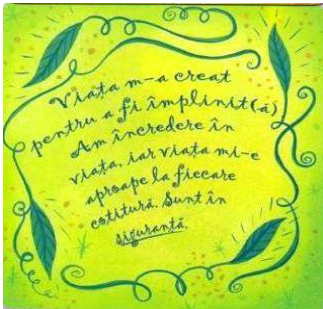 Viața m-a creat
pentru a fi împlinit(ă)
Am încredere în
viață, iar viața mi-e
aproape la fiecare
cotitură. Sunt în
siguranță.